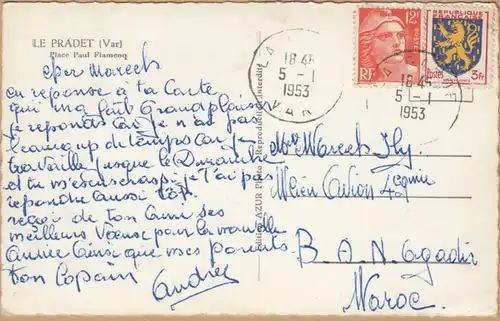 LE PRADET (Var)
Place Paul Flamenq
cher Mareck
en reponse à ta Carte
qui m'a fait Grand plaisir
je reponds car je n'ai pas
beaucoup de temps car je
travaille jusque le Dimanche
et tu m'escuseras si je t'ai pas
repondre aussi tôt
reçoi de ton Ami ses
meilleurs Voeux pour la nouvelle
Année Ainsi que mes parents.
Ton Copain
André
Edition AZUR Photo - Reproduction Interdite
12F
RF
REPUBLIQUE FRANÇAISE
POSTES
3F
18 45
5 - 1
1953
VAR
18 45
5 - 1
1953
Mareck
B. A. N. Agadir
Maroc.